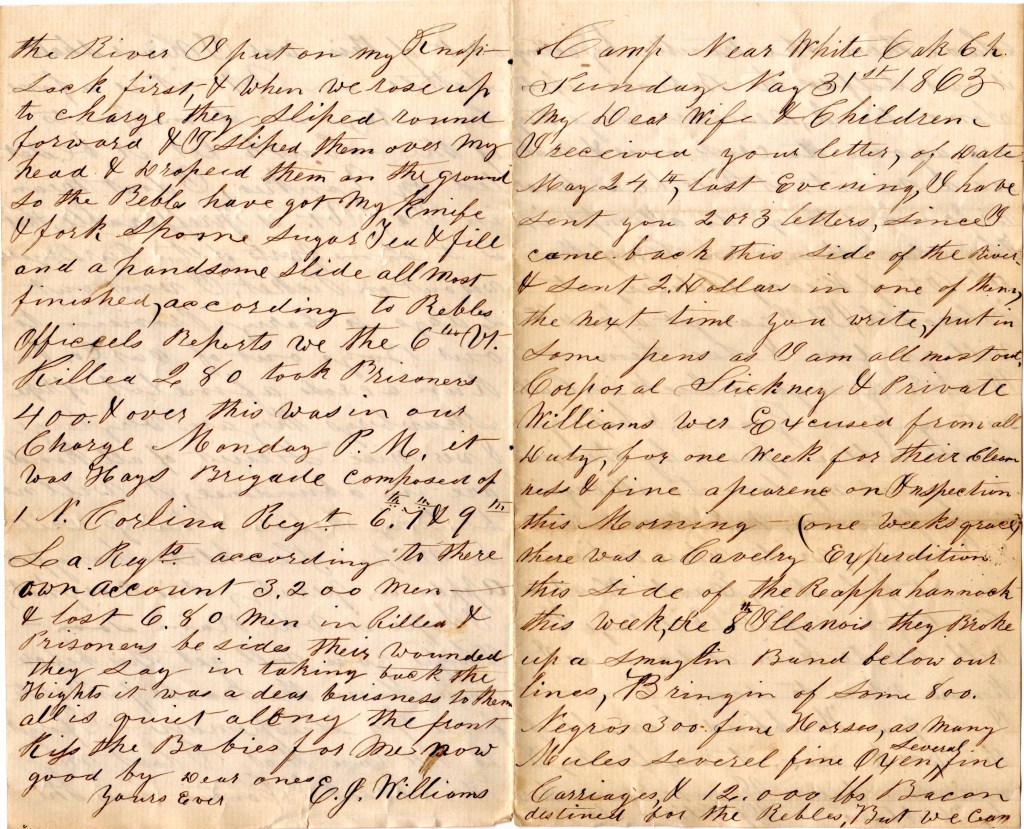 the River I put on my Knap-
sack first, & when we rose up
to charge they sliped round
forward & I sliped them over my
head & Dropeed them on the ground
so the Rebls have got my knife
& fork Spoone Sugar Tea & file
and a handsome slide all most
finished, according to Rebles
Officels Reports we the 6th Vt.
Killed 280 took Prisoners
400. & over this was in our
Charge Monday P.M. it
was Hays Brigade composed of
1 N. Corlina Regt. 6.th 7th & 9th
La. Regts. according to there
own account 3,200 men—
& lost 680 men in Killed &
Prisoners be sides their wounded
they say in taking back the
Hights it was a dear buisness to them
all is quiet along the front
Kiss the Babies for me now
good by Dear ones
Yours Ever E. J. Williams
Camp Near White Oak Ch.
Sunday May 31st 1863
My Dear Wife & Children
I received your letter, of Date
May 24th, last Evening, I have
sent you 2 or 3 letters, since I
came back this side of the River
& sent 2. Dollars in one of them,
the next time you write, put in
some pens as I am all most out,
Corporal Stickney & Private
Williams wer Excused from all
Duty, for one Week for their Clean
ness & fine apearenc on Inspection
this Morning — (one weeks grace)
there was a Cavelry Experdition
this side of the Reappahannock
this week, the 8th Illanois they Broke
up a smuglin Band below our
lines, Bringin of some 800.
Negros 300. fine Horses, as many
Mules severel fine Oxen, Several fine
Carriages, & 12.000 lbs Bacon
destined for the Rebles, But we can